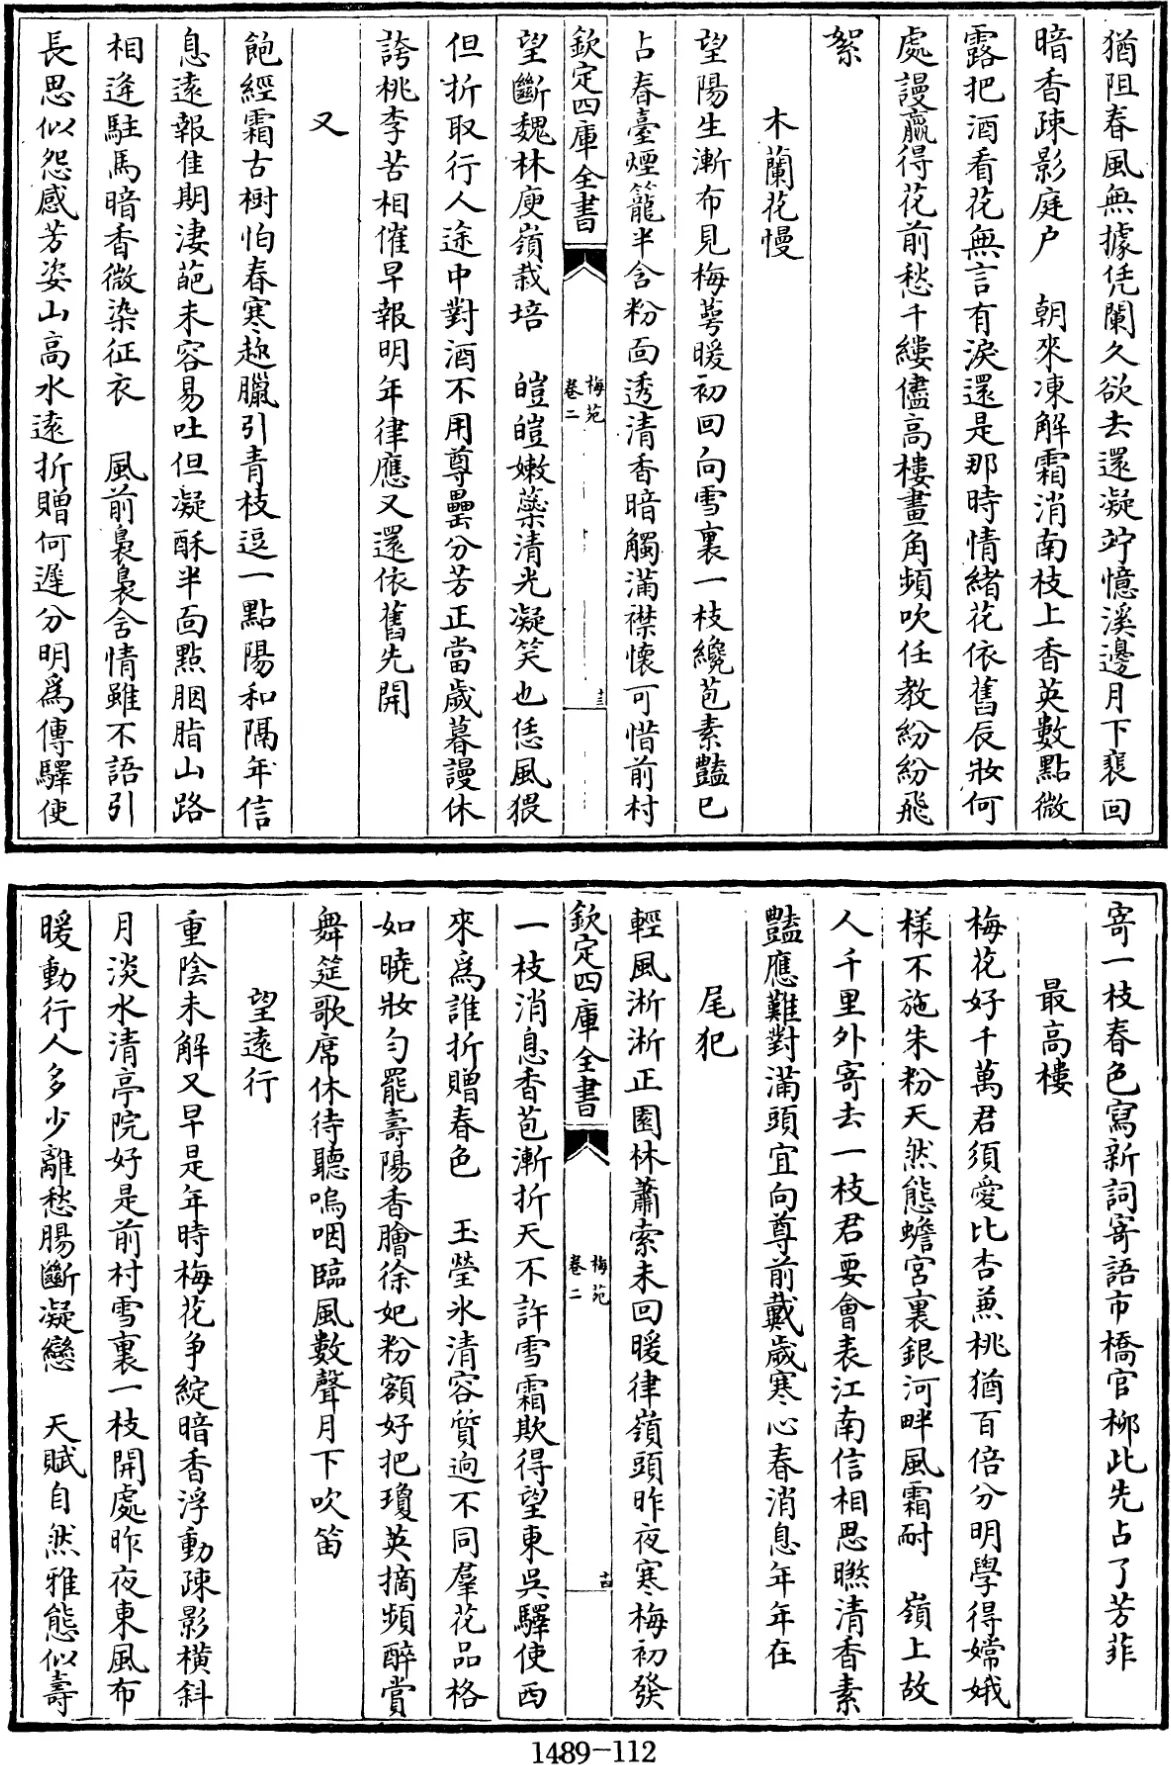 猶阻春風無據凭闌久欲去還凝竚憶溪邊月下裴回
暗香疎影庭户　朝來凍解霜消南枝上香英數點微
露把酒看花無言有淚還是那時情緒花依舊辰妝何
處謾贏得花前愁千縷儘高樓畫角頻吹任教紛紛飛
絮
木蘭花慢
望陽生漸布見梅萼暖初回向雪裏一枝纔苞素豔已
占春臺煙籠半含粉面透清香暗觸滿襟懷可惜前村
欽定四庫全書
梅苑
卷二
十三
望斷魏林庾嶺栽培　皚皚嫩蘂清光凝笑也恁風猥
但折取行人途中對酒不用尊罍分芳正當歲暮謾休
誇桃李苦相催早報明年律應又還依舊先開
又
飽經霜古樹怕春寒趂臘引青枝逗一點陽和隔年信
息遠報佳期淒葩未容易吐但凝酥半面點胭脂山路
相逢駐馬暗香微染征衣　風前裊裊含情雖不語引
長思似怨感芳姿山高水遠折贈何遲分明為傳驛使
寄一枝春色寫新詞寄語市橋官柳此先占了芳菲
最高樓
梅花好千萬君須愛比杏兼桃猶百倍分明學得嫦娥
樣不施朱粉天然態蟾宮裏銀河畔風霜耐　嶺上故
人千里外寄去一枝君要會表江南信相思瞧清香素
豔應難對滿頭宜向尊前戴歲寒心春消息年年在
尾犯
輕風淅淅正園林蕭索未回暖律嶺頭昨夜寒梅初發
欽定四庫全書
梅苑
卷二
十四
一枝消息香苞漸折天不許雪霜欺得望東吳驛使西
來為誰折贈春色　玉瑩氷清容質逈不同羣花品格
如曉妝勻罷壽陽香臉徐妃粉額好把瓊英摘頻醉賞
舞筵歌席休待聽嗚咽臨風數聲月下吹笛
望遠行
重陰未解又早是年時梅花爭綻暗香浮動疎影橫斜
月淡水清亭院好是前村雪裏一枝開處昨夜東風布
暖動行人多少離愁腸斷凝戀　天賦自然雅態似壽
1489-112